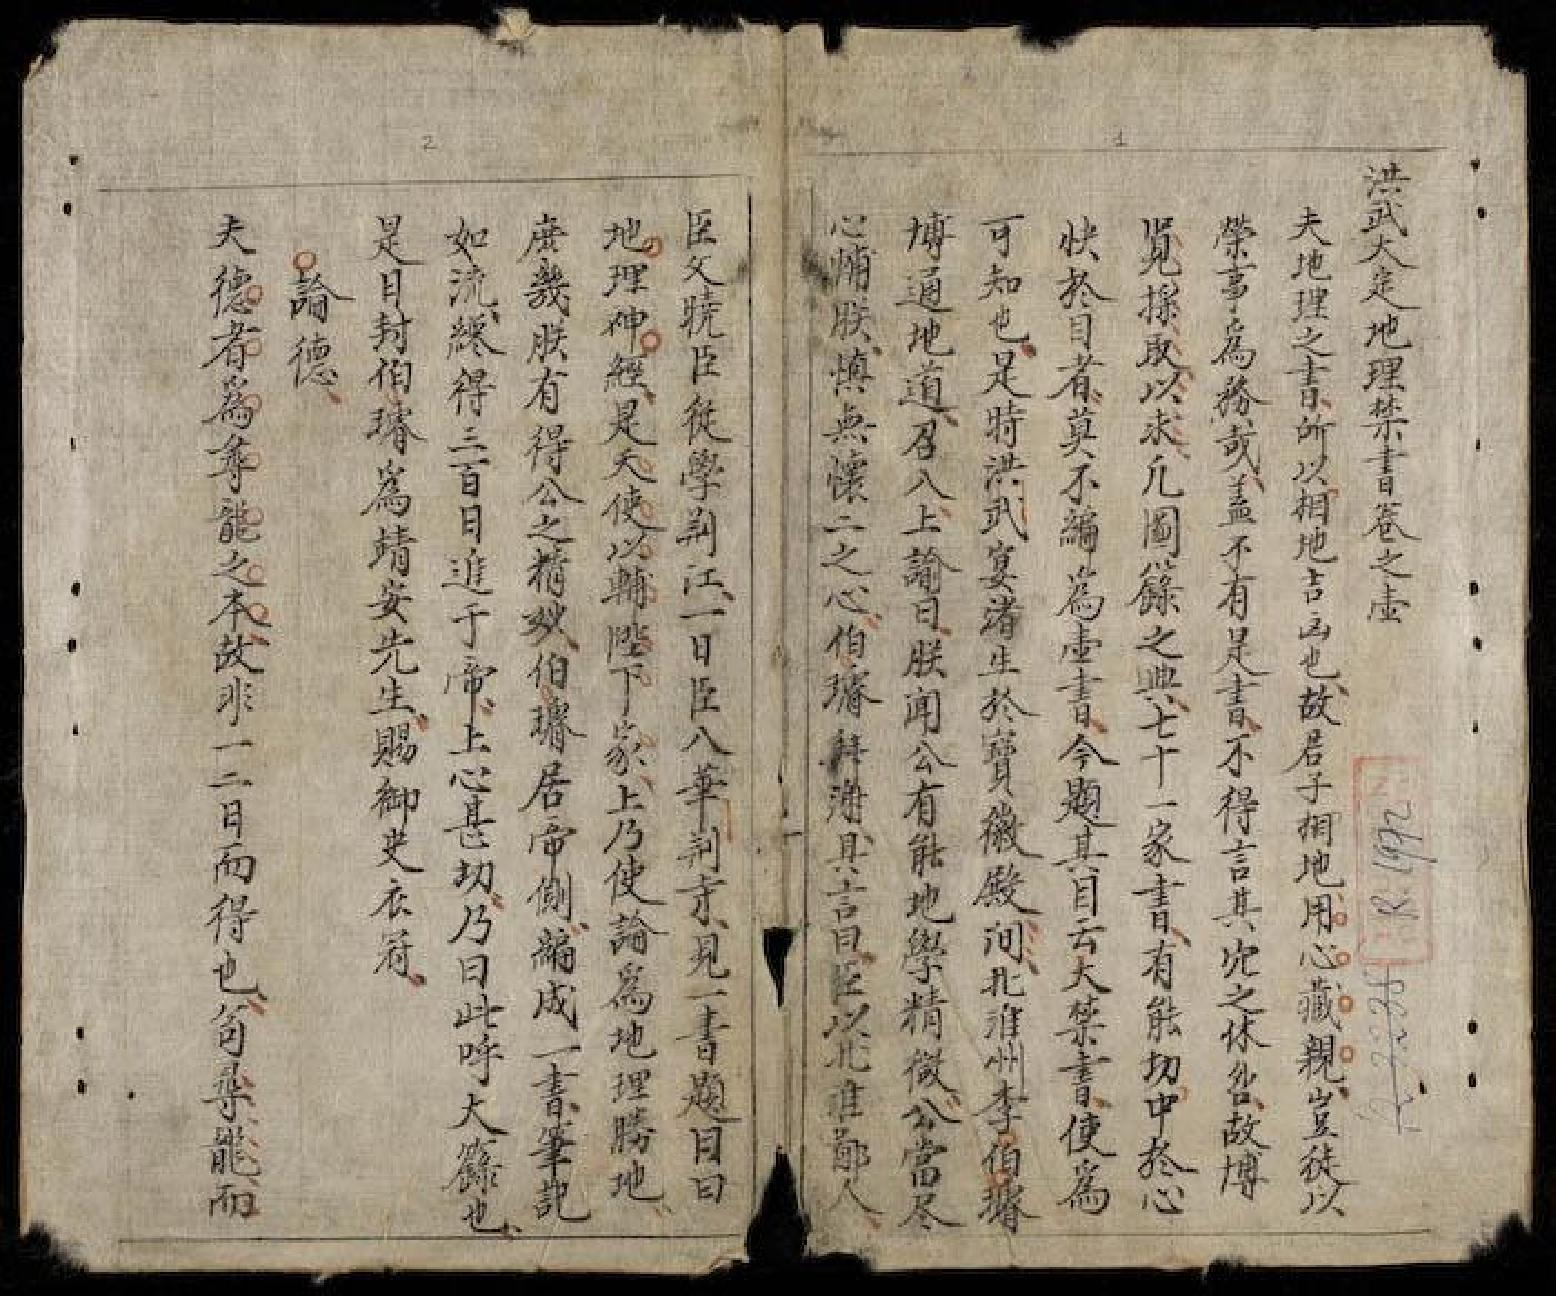 洪武大定地理禁書卷之壹
夫地理之書所以相地吉凶也故君子相地用心藏親豈徒以
榮事為務哉蓋不有是書不得言其穴之休咎故博
覓採取以求凡圖籙之典七十一家書有能切中於心
快於目者莫不編為壹書今題其目云大禁書使為
可知也是時洪武宴渚生於寶徽殿河北淮州李伯璿
博通地道召入上諭曰朕闻公有能地學精微公當尽
心備朕慎無懷二之心伯璿拜謝具言曰臣以北淮鄙人
臣父曉臣從學荆江一日臣入華荆寺見一書題目曰
地理神經是天使以輔陛下家上乃使論為地理勝地
庶幾朕有得公之精妙伯璿居帝側編成一書筆記
如流纔得三百日進于帝上心甚切乃曰此呼大籙也
是日封伯璿為靖安先生賜御史衣冠
論德
夫德者為尋龍之本故非一二日而得也苟尋龍而
1
2
R.1992